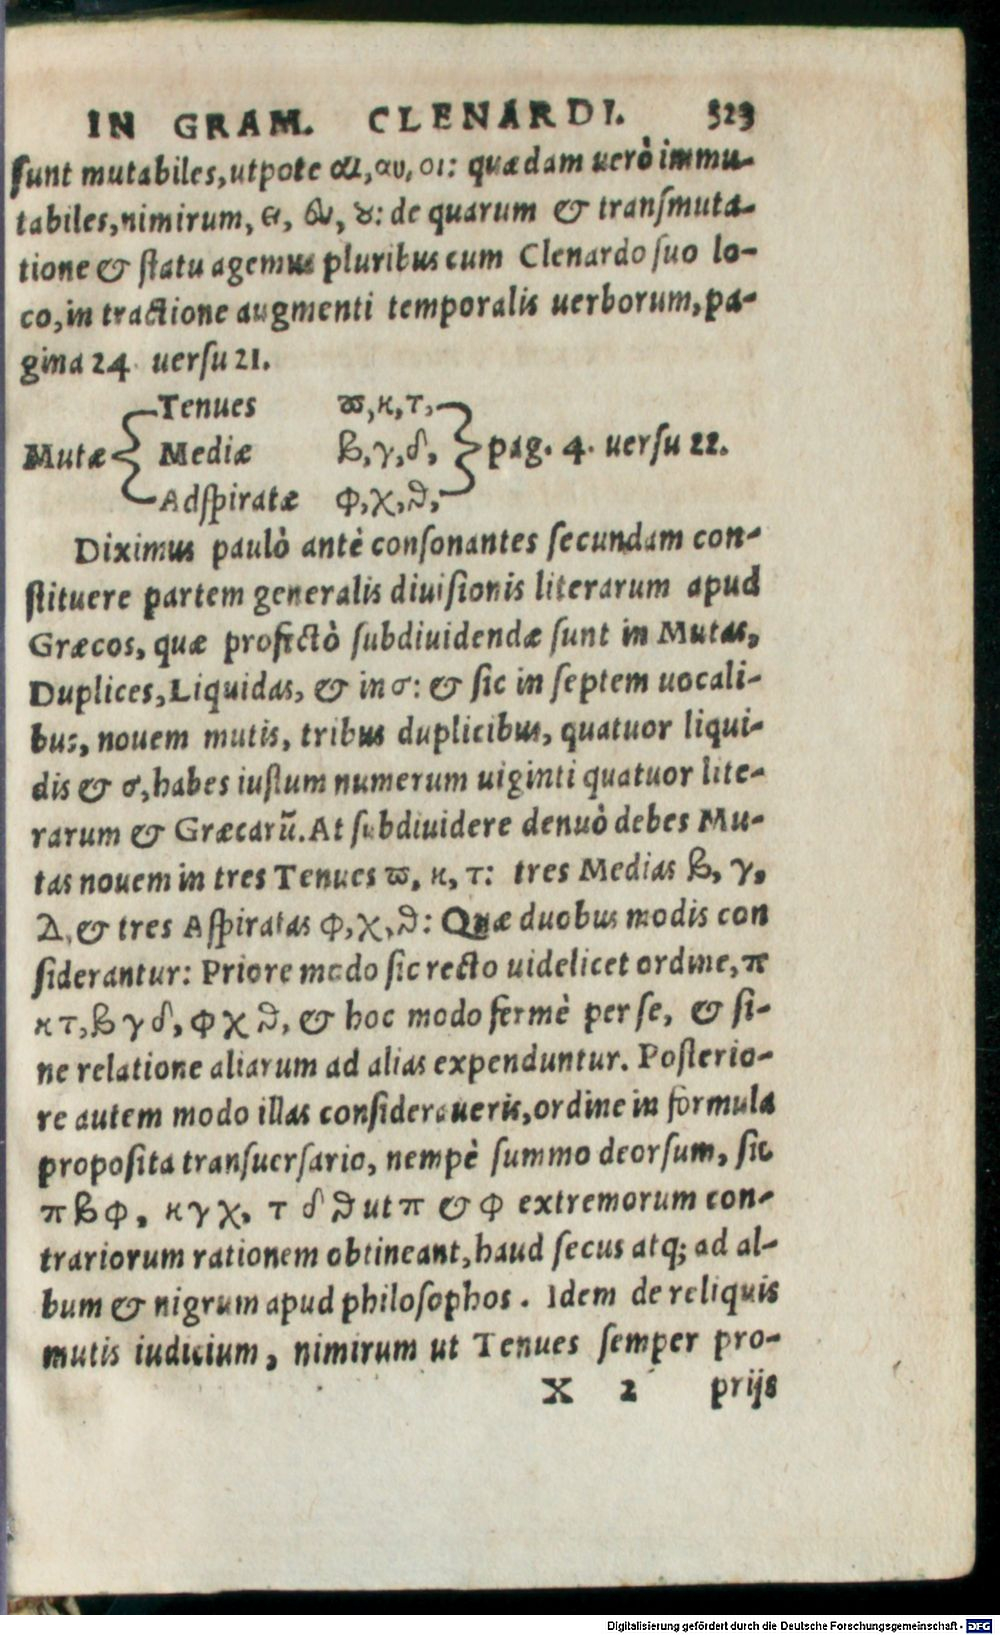 IN GRAM. CLENARDI. 323
ſunt mutabiles, utpote αι, αυ, οι: quædam uerò immu-
tabiles, nimirum, ει, ευ, ȣ: de quarum & tranſmuta-
tione & ſtatu agemus pluribus cum Clenardo ſuo lo-
co, in tractione augmenti temporalis uerborum, pa-
gina 24 uerſu 21.
Tenues ϖ, κ, τ,
Mutæ Mediæ ϐ, γ, δ, pag. 4. uerſu 22.
Adſpiratæ φ, χ, ϑ,
Diximus paulò antè conſonantes ſecundam con-
ſtituere partem generalis diuiſionis literarum apud
Græcos, quæ profectò ſubdiuidendæ ſunt in Mutas,
Duplices, Liquidas, & in σ: & ſic in ſeptem uocali-
bus, nouem mutis, tribus duplicibus, quatuor liqui-
dis & σ, habes iuſtum numerum uiginti quatuor lite-
rarum & Græcarũ. At ſubdiuidere denuò debes Mu-
tas nouem in tres Tenues ϖ, κ, τ: tres Medias ϐ, γ,
Δ, & tres Aſpiratas φ, χ, ϑ: Quæ duobus modis con
ſiderantur: Priore modo ſic recto uidelicet ordine, π
κ τ, ϐ γ δ, φ χ ϑ, & hoc modo fermè per ſe, & ſi-
ne relatione aliarum ad alias expenduntur. Poſterio-
re autem modo illas conſideraueris, ordine in formula
propoſita tranſuerſario, nempè ſummo deorſum, ſic
π ϐ φ, κ γ χ, τ δ ϑ ut π & φ extremorum con-
trariorum rationem obtineant, haud ſecus atq; ad al-
bum & nigrum apud philoſophos. Idem de reliquis
mutis iudicium, nimirum ut Tenues ſemper pro-
X 2 prijs
Digitalisierung gefördert durch die Deutsche Forschungsgemeinschaft - DFG